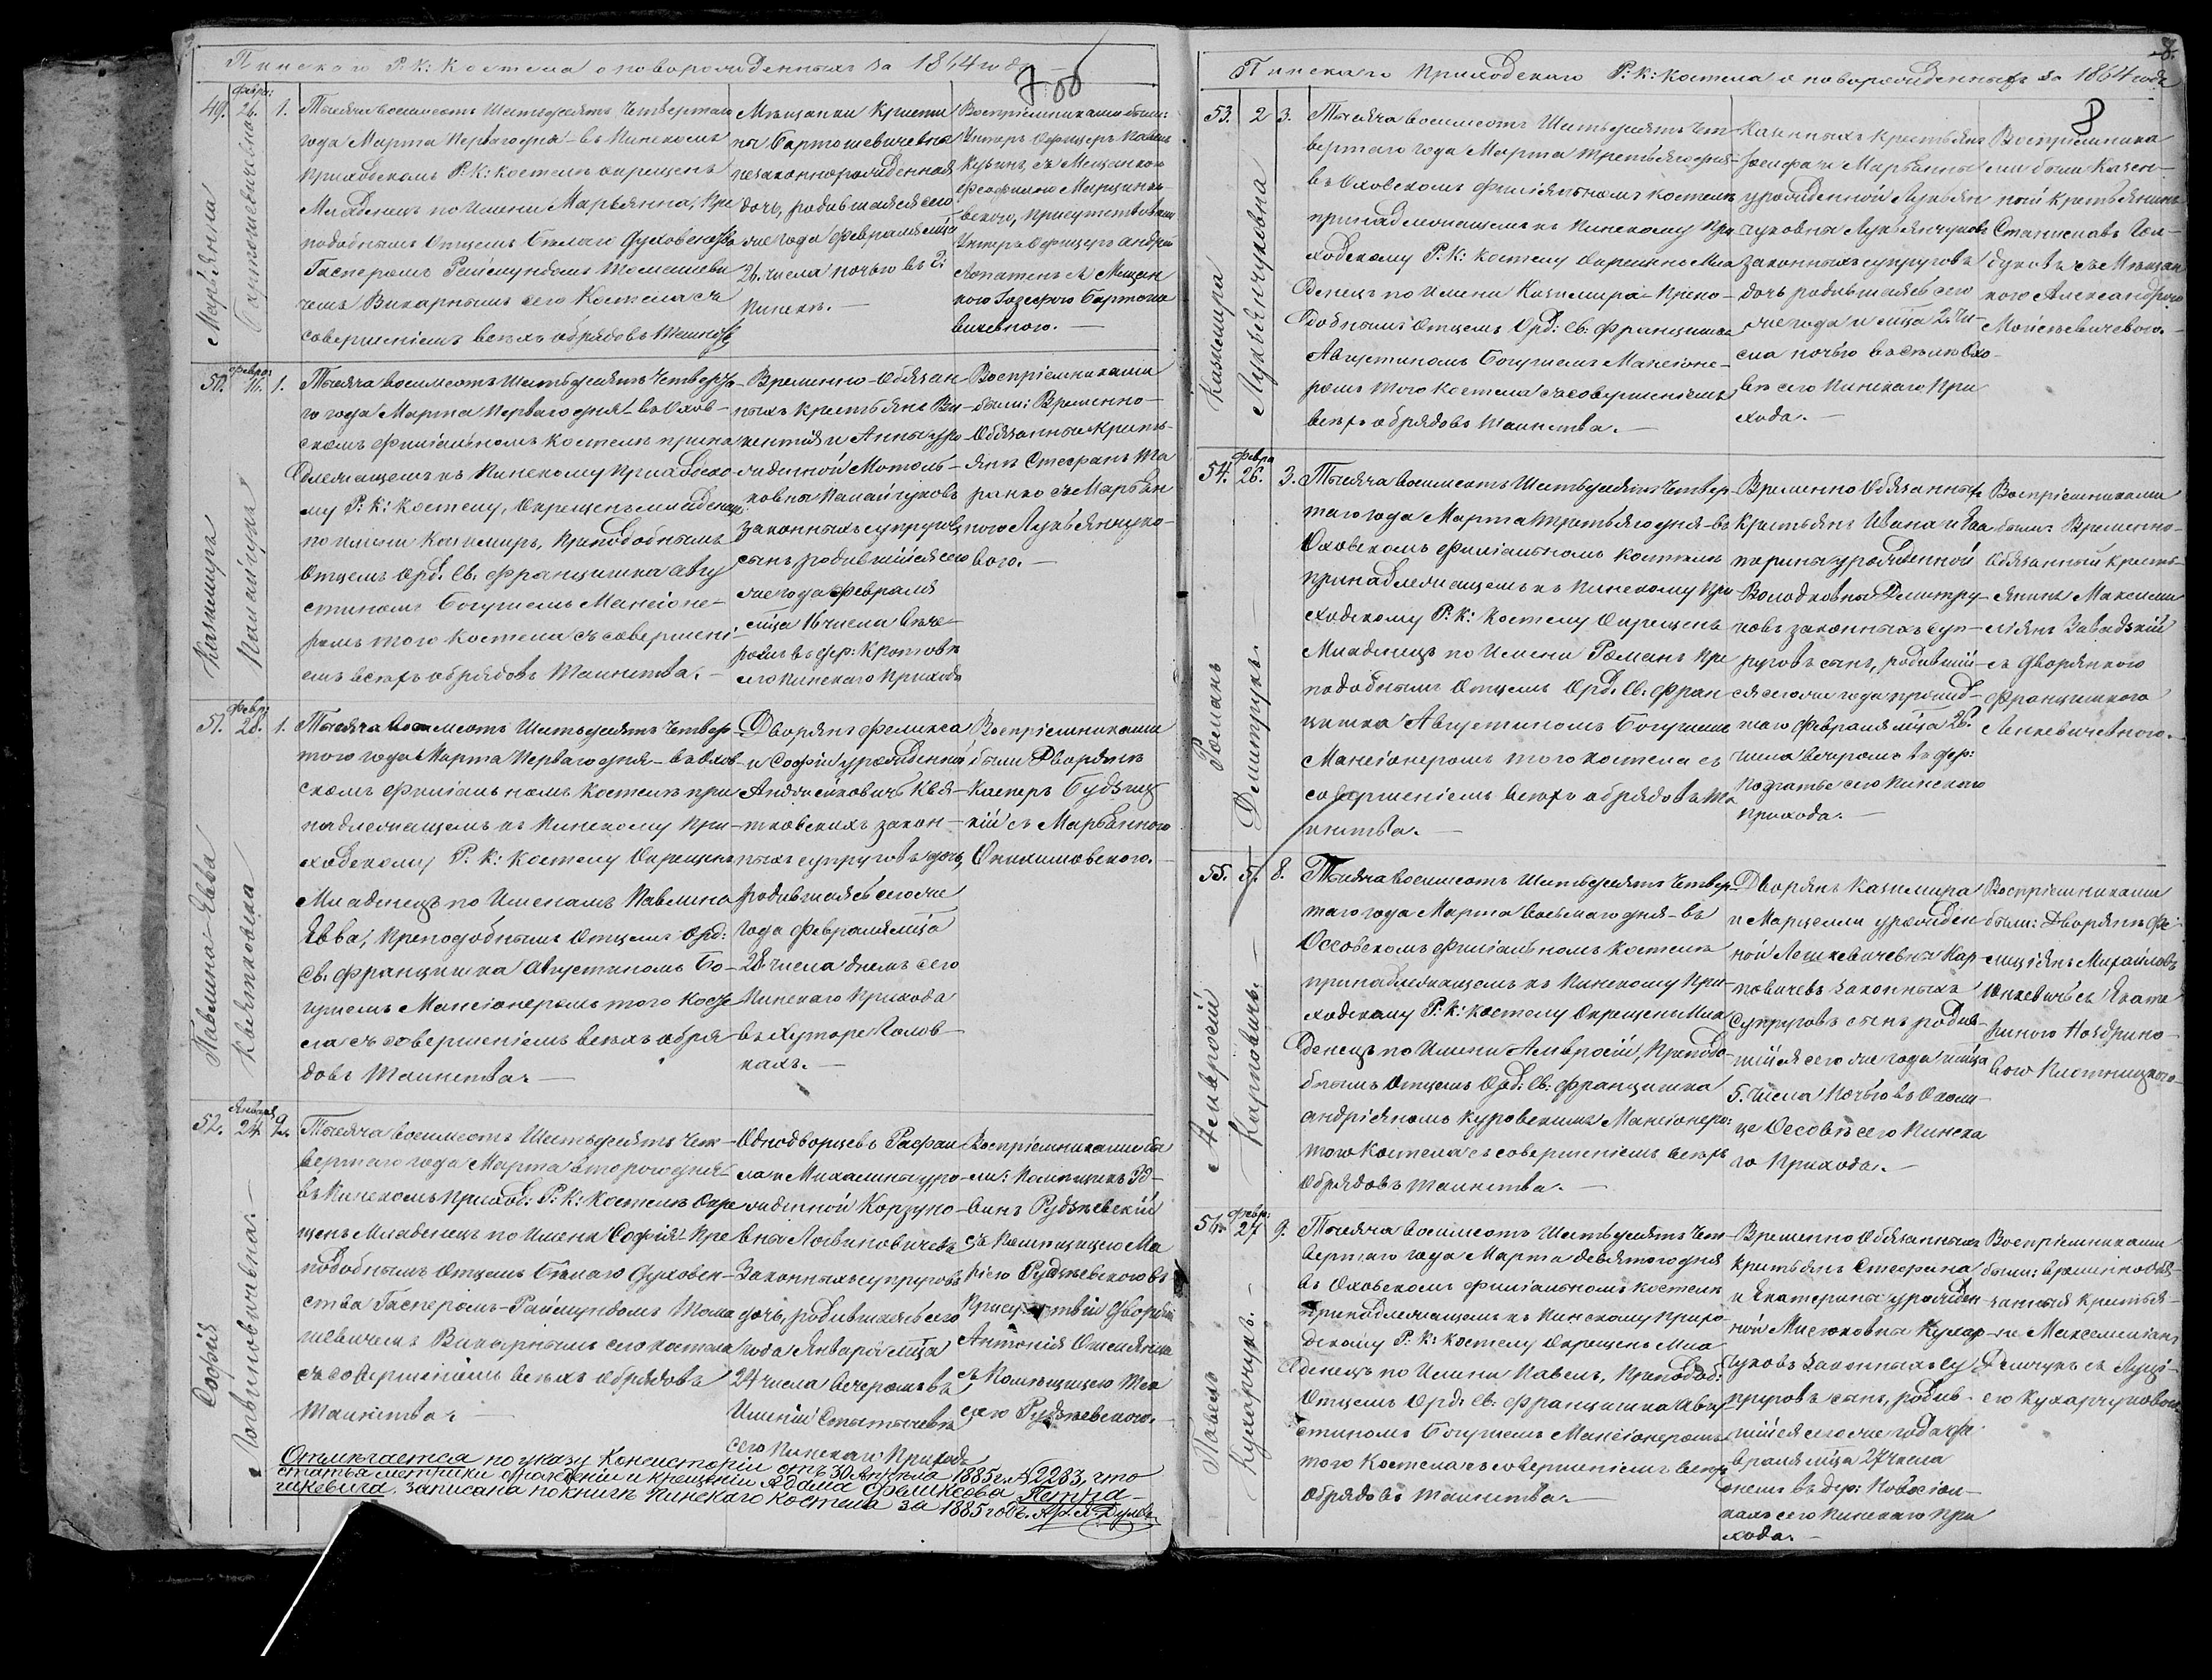 Пинскаго Р. К: Костела о новорожденныхъ за 1864 годъ
49. Февр: 26. 1.
Марьянна
Бартошевичевна
Тысяча восемсотъ Шестьдесятъ Четвертаго
года Марта Перваго дня – въ Пинскомъ
приходскомъ Р: К: костелѣ окрещенъ
Младенецъ по Имени Марьянна, Пре
подобнымъ Отцемъ Бѣлаго Духовенства
Гаспероmъ Раймундомъ Томашеви
чемъ Викарнымъ сего Костела съ
совершеніемъ всѣхъ обрядовъ Таинства
Мѣщанки Кристи
ны Бартошевичевны
незаконнорожденная
дочь, родившаяся сего
же года Февраля мца
26. числа ночью въ г.
Пинскѣ. —
Воспріемниками были:
Унтеръ Офицеръ
съ Мещанкою
Феофилою
присутствовали
Унтеръ Офицеръ Андрей
съ Мещан
кою Іозефою Бартоше
вичевною. —
50. Февр: 16. 1.
Казимиръ
Тысяча восемсотъ Шестьдесятъ Четверта
го года Марта Перваго дня – въ Охов-
скомъ Филіальномъ Костелѣ прина
длежащемъ къ Пинскому Приходско
му Р: К: Костелу, Окрещенъ младенецъ
по имени Казимиръ, Преподобнымъ
Отцемъ Орд. Св. Францишка Авгу
стиномъ Богушемъ Мансіоне-
ромъ того Костела съ совершені-
емъ всѣхъ обрядовъ Таинства. —
Временно-Обязан
ныхъ крестьянъ Ви-
кентія и Анны уро
жденной Мотоль-
ковны
законныхъ супруговъ
сынъ родившійся сего
же года Февраля
мца 16 числа вече-
ромъ въ дер: Кротовѣ
сего Пинскаго Прихода
Воспріемниками
были: Временно-
Обязанные кресть-
янъ Стефанъ Та
ранко съ Марьян
ною Лукьянчуко-
вою. —
51. Февр: 28. 1.
Павлина-Евва
Квятковска
Тысяча восемсотъ Шестьдесятъ Четвер-
того года Марта Перваго дня – въ Охов-
скомъ Филіальномъ Костелѣ при
надлежащемъ къ Пинскому При-
ходскому Р: К: Костелу Окрещенъ
Младенецъ по Именамъ Павлина
Евва, Преподобнымъ Отцемъ Орд:
Св. Францишка Августиномъ Бо-
гушемъ Мансіонеромъ того Косте
ла съ совершеніемъ всѣхъ обря
довъ Таинства. —
Дворянъ Феликса
и Софіи урожденной
Андженковичъ Квя-
тковскихъ закон-
ныхъ супруговъ дочь,
родившаяся сего же
года Февраля мца
28. числа днемъ сего
Пинскаго Прихода
въ Хуторе Голов-
кахъ. —
Воспріемниками
были Дворяне
Касперъ Будзиц
кій съ Марьянною
52. Января 24. 2.
Софія
Логвиновичевна. —
Тысяча восемсотъ Шестьдесятъ Чет-
вертаго года Марта второго дня –
въ Пинскомъ Приход: Р: К: Костелѣ Окре
щенъ Младенецъ по Имени Софія Пре
подобнымъ Отцемъ Бѣлаго Духовен-
ства Гаспероmъ-Раймундомъ Тома
шевичемъ Викарнымъ сего костела
съ совершеніемъ всѣхъ обрядовъ
Таинства. —
Однодворцевъ Рафаи
ла и Михалины уро-
жденной Корзуно-
вны Логвиновичевъ
Законныхъ супруговъ
дочь, родившаяся сего
года Января мца
24 числа вечеромъ въ
Имѣніи Стытычевѣ
сего Пинскаго Прихода
Воспріемниками бы
ли: Помѣщикъ Эд-
винъ Рудзѣевскій
съ Помѣщицею Ма
ріею Рудзѣевскою въ
Присутствіи Дворян
Антонія
съ Помѣщицею Тек
лею Рудзѣевскою. —
Отмѣчается по указу Консисторіи отъ 30 Апрѣля 1885 г. № 2283, что
статья метрики о рожденіи и крещеніи Адама Феликсова Петра-
шкевича. записана по книгѣ Пинскаго костела за 1885 годъ.
8.
Пинскаго Приходскаго Р: К: костела о новорожденныхъ за 1864 годъ
8
53. 2 3.
Казимира
Лукьянчуковна
Тысяча восемсотъ Шестьдесятъ Чет
вертаго года Марта третьяго дня –
въ Оховскомъ Филіяльномъ костелѣ
принадлежащемъ къ Пинскому При
ходскому Р: К: Костелу Окрещенъ Мла
денецъ по Имени Казимира – Препо-
добнымъ Отцемъ Орд: Св. Францишка
Августиномъ Богушемъ Мансіоне-
ромъ того Костела съ совершеніемъ
всѣхъ обрядовъ Таинства. —
Казенныхъ крестьянъ
Іосифа и Марьянны
урожденной Лукьян
чуковны Лукьянчуковъ
законныхъ супруговъ
дочь родившаяся сего
же года и мца 2. чи-
сла ночью въ селѣ Охо-
вѣ сего Пинскаго При
хода. —
Воспріемника
ми были Казен-
ный крестьянинъ
Станиславъ Гол-
буковъ съ Мѣщан
кою Александрою
Мойсѣевичевою. —
54. Февр. 26. 3.
Романъ
Демитрукъ.
Тысяча восемсотъ Шестьдесятъ Четвер-
таго года Марта третьяго дня – въ
Оховскомъ Филіальномъ костелѣ
принадлежащемъ къ Пинскому При
ходскому Р: К: Костелу Окрещенъ
Младенецъ по Имени Романъ Пре
подобнымъ Отцемъ Орд. Св. Фран
цишка Августиномъ Богушемъ
Мансіонеромъ того костела съ
совершеніемъ всѣхъ обрядовъ Та
инства. —
Временно Обязанныхъ
Крестьянъ Ивана и Ека
терины урожденной
Володковны Демитру-
ковъ законныхъ суп-
руговъ сынъ, родивший-
ся сего же года прошед-
шаго Февраля мца 26.
числа вечеромъ въ дер:
Подгатье сего Пинскаго
прихода. —
Воспріемниками
были: Временно-
Обязанный кресть-
янинъ Максими
ліянъ Завадзкій
съ дворянкою
Францишкою
Ленкевичевною. —
55. 5. 8.
Амвросій
Карповичъ. —
Тысяча восемсотъ Шестьдесятъ Четвер-
таго года Марта восьмаго дня – въ
Оссовскомъ Филіальномъ костелѣ
принадлежащемъ къ Пинскому При-
ходскому Р: К: Костелу Окрещенъ Мла
денецъ по Имени Амвросій, Преподо-
бнымъ Отцемъ Орд: Св: Францишка
Андріяномъ Куровскимъ Мансіонеро:
того Костела съ совершеніемъ всѣхъ
Обрядовъ Таинства. —
Дворянъ Казимира
и Марцелли урожден
ной Лешкевичевны Кар-
повичевъ законныхъ
Супруговъ сынъ родив-
шійся сего же года и мца
5. числа Ночью въ Околи-
це Оссовѣ сего Пинска
го Прихода. —
Воспріемниками
были: Дворянъ Фе-
лиціянъ Михайловъ
Юнкевичъ съ Екате
риною
вою
56. Февр: 27 9.
Павелъ
Кухарчукъ. —
Тысяча восемсотъ Шестьдесятъ Чет-
вертаго года Марта девятого дня
въ Оховскомъ Филіальномъ костелѣ
принадлежащемъ къ Пинскому Прихо-
дскому Р: К: Костелу Окрещенъ Мла
денецъ по Имени Павелъ, Преподоб:
Отцемъ Орд. Св. Францишка Авгу
стиномъ Богушемъ Мансіонеромъ
того Костела съ совершеніемъ всѣхъ
обрядовъ Таинства. —
Временно Обязанныхъ
Крестьянъ Стефана
и Екатерины урожден
ной Мисюковны Кухар-
чуковъ законныхъ су
пруговъ сынъ, родив-
шійся сего же года Фе
враля мца 27 числа
днемъ въ дер: Новосіол-
кахъ сего Пинскаго При
хода. —
Воспріемниками
были: временнообя-
занный крестья-
не Максемиліанъ
Демчукъ съ Луці-
ею Кухарчуковою.